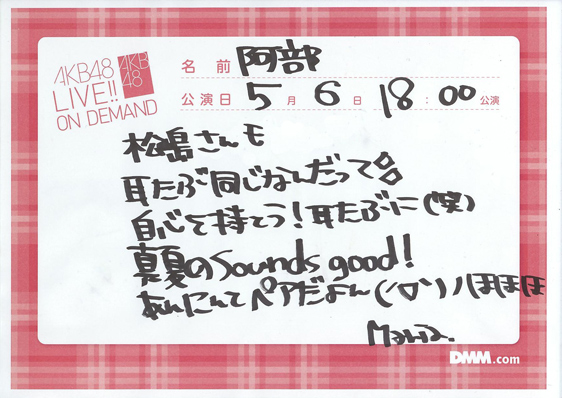 AKB48
LIVE!!
ON DEMAND
AKB
48
名前 阿部
公演日 5月6日 18:00公演
松島さんモ
耳たぶ同じなんだって
自心を持てう!耳たぶに(笑)
真夏のSounds good!
あんにんてペアだよん(´▽`)ノほほほ
Maria.
DMM.com